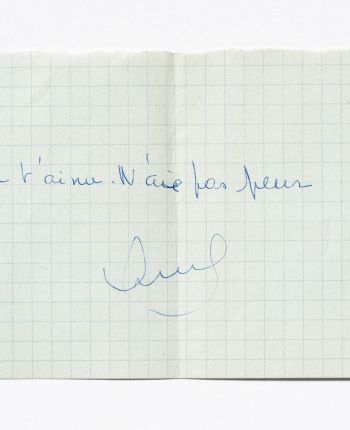 t'aime. N'aie pas peur